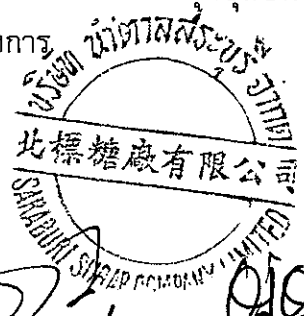 บริษัท น้ำตาลสระบุรี จำกัด
北標糖廠有限公司
SARABURI SUGAR COMPANY LIMITED